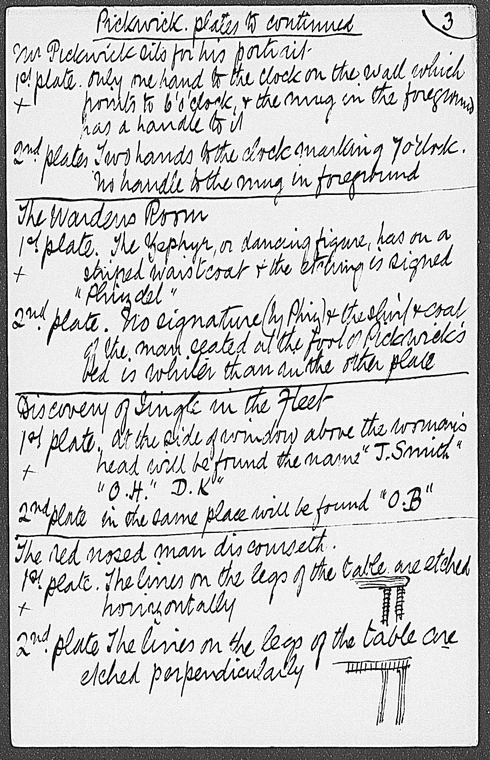 Pickwick. plates to continued
3
Mr Pickwick sits for his portrait
1st plate. only one hand to the clock on the wall which
+ points to 6 o'clock, & the mug in the foreground
has a handle to it
2nd plates Two hands to the clock marking 7 o'clock.
No handle to the mug in foreground
The Wardens Room
1st plate. The Zephyr, or dancing figure, has on a
+ striped waistcoat & the etching is signed
"Phiz del"
2nd plate. No signature (by Phiz) & the shirt & coat
of the man seated at the foot of Pickwick's
bed is whiter than in the other plate
Discovery of Jingle in the Fleet
1st plate. at the side of window above the woman's
+ head will be found the name "J. Smith"
"O.H." D.K"
2nd plate in the same place will be found "O.B"
The red nosed man discourseth.
1st plate. The lines on the legs of the table are etched
+ horizontally
2nd plate The lines on the legs of the table are
etched perpendicularly